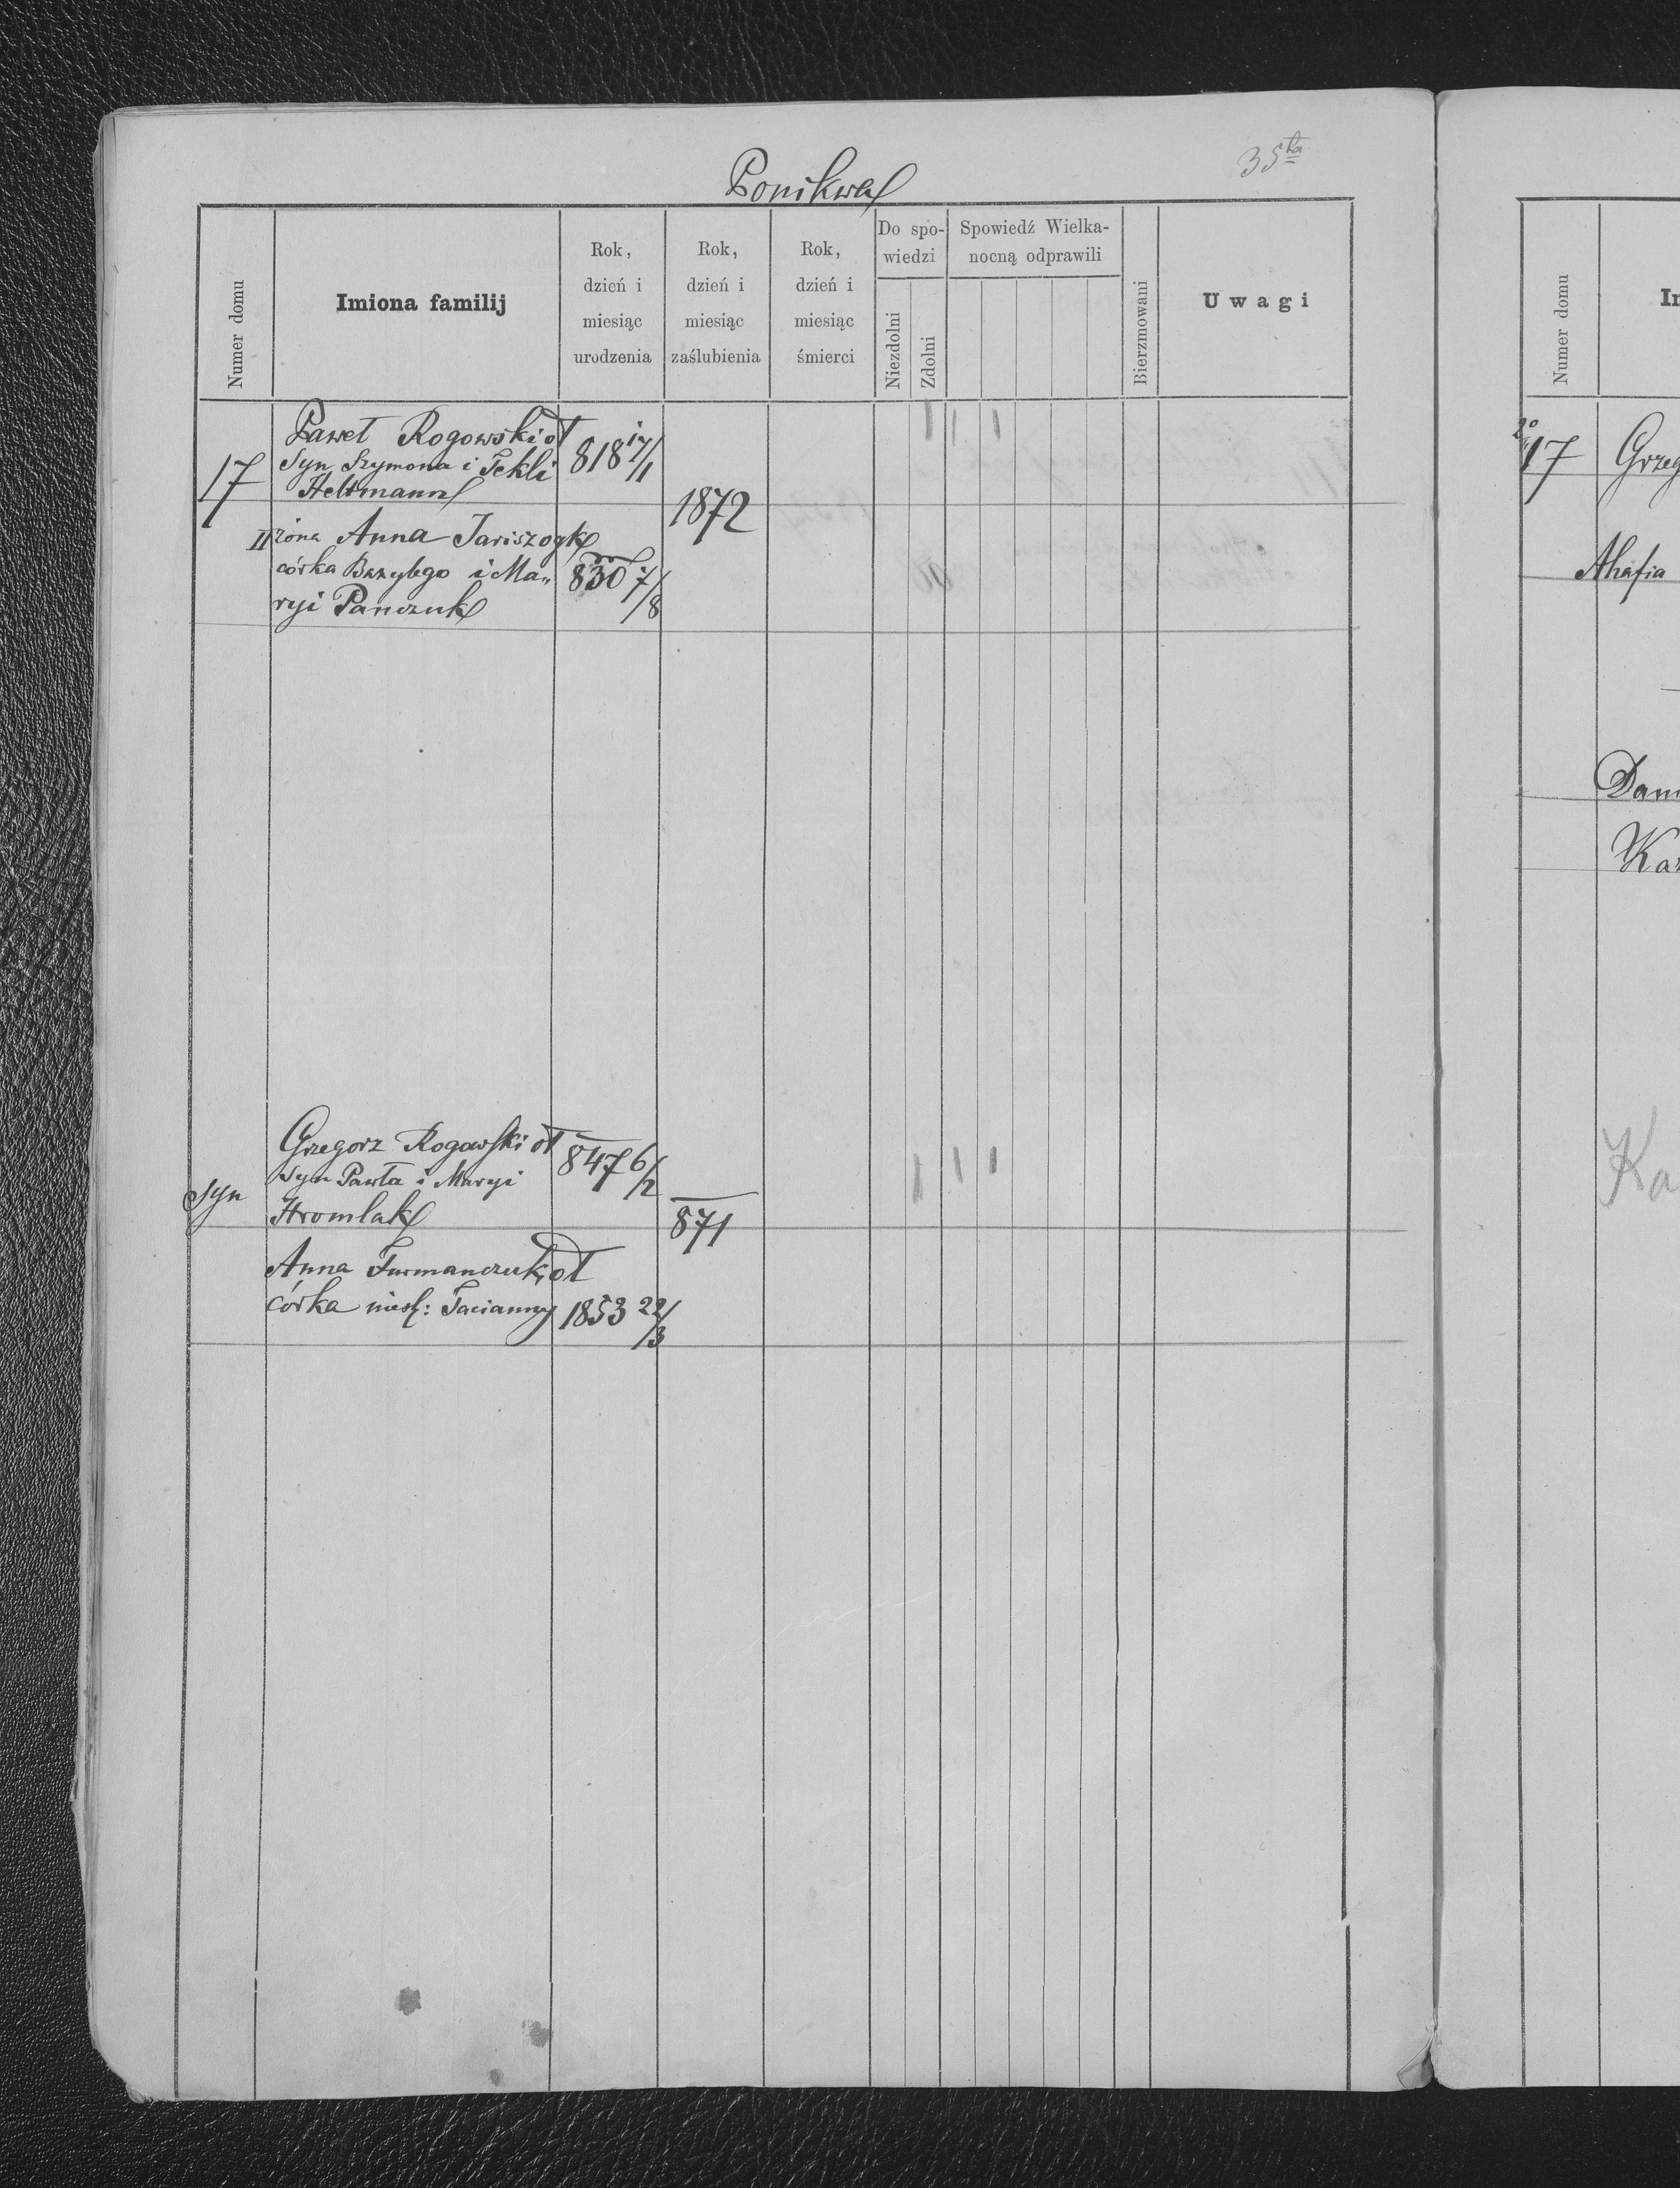 35ta
Ponikwa
Numer domu
Imiona familij
Rok,
dzień i
miesiąc
urodzenia
Rok,
dzień i
miesiąc
zaślubienia
Rok,
dzień i
miesiąc
śmierci
Do spo-
wiedzi
Niezdolni
Zdolni
Spowiedź Wielka-
nocną odprawili
Bierzmowani
Uwagi
17
Paweł Rogowski ot
Syn Szymona i Tekli
Heltmann
818 17/1
1872
II żona Anna Jariszogk
córka Bazylego i Ma„
ryi Panczuk
830 7/8
Syn
Grzegorz Rogowski ot
Syn Pawła i Maryi
Hromlak
847 6/2
871
Anna Furmanczuk ot
córka nieśl: Tacianny
1853 22/3
Numer domu
Im
2°
17
Grzeg
Ahafia
Dam
Kaz
Ka